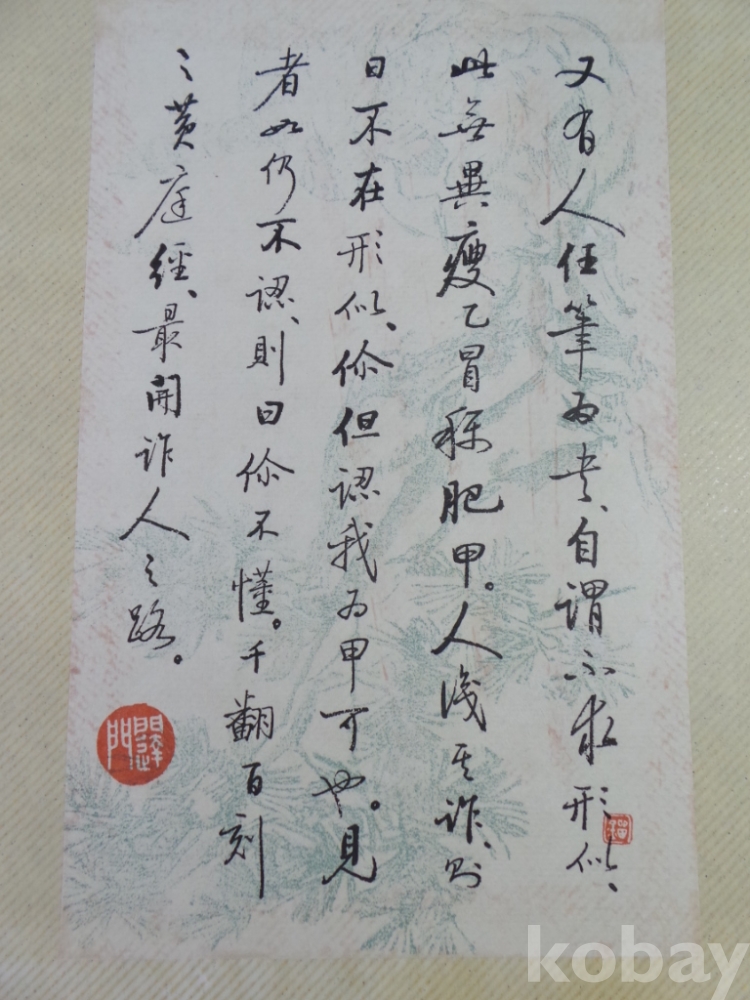 又有人任筆为書、自謂不求形似、
此無異瘦乙冒稱肥甲。人識其詐、則
曰不在形似、你但認我为甲可也。見
者如仍不認、則曰你不懂。千翻百刻
之黄庭經、最開詐人之路。
kobay